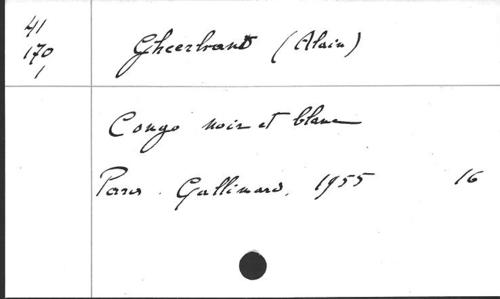 41
170
1
Gheerbrant (Alain)
Congo noir et blanc
Paris. Gallimard, 1955 16